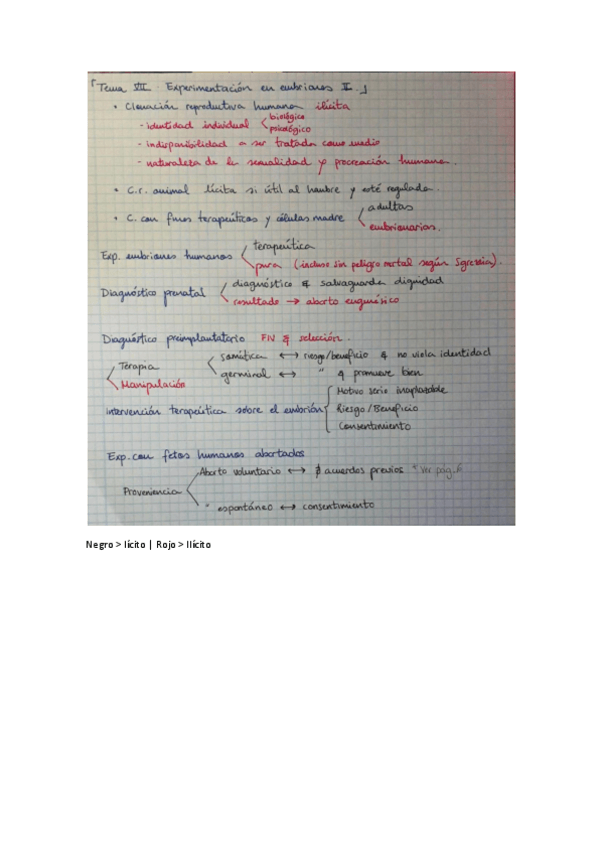 「Tema VII. Experimentación en embriones II.」
• Clonación reproductiva humana ilícita
- identidad individual < biológica
psicológico
- indisponibilidad a ser tratada como medio
- naturaleza de la sexualidad y procreación humana.
• C.r. animal lícita si útil al hombre y esté regulada.
• C. con fines terapeúticos y células madre < adultas
embrionarias.
Exp. embriones humanos < terapeútica
pura (incluso sin peligro mortal según Sgreccia).
Diagnóstico prenatal < diagnóstico & salvaguarda dignidad
resultado → aborto eugenésico
Diagnóstico preimplantatorio FIV & selección.
< Terapia < somática ↔ riesgo/beneficio & no viola identidad
germinal ↔ " & promueve bien
Manipulación
intervención terapeútica sobre el embrión { Motivo serio inaplazable
Riesgo/Beneficio
Consentimiento
Exp. con fetos humanos abortados
Proveniencia < Aborto voluntario ↔ ∄ acuerdos previos * Ver pág.
" espontáneo ↔ consentimiento
Negro > lícito | Rojo > Ilícito